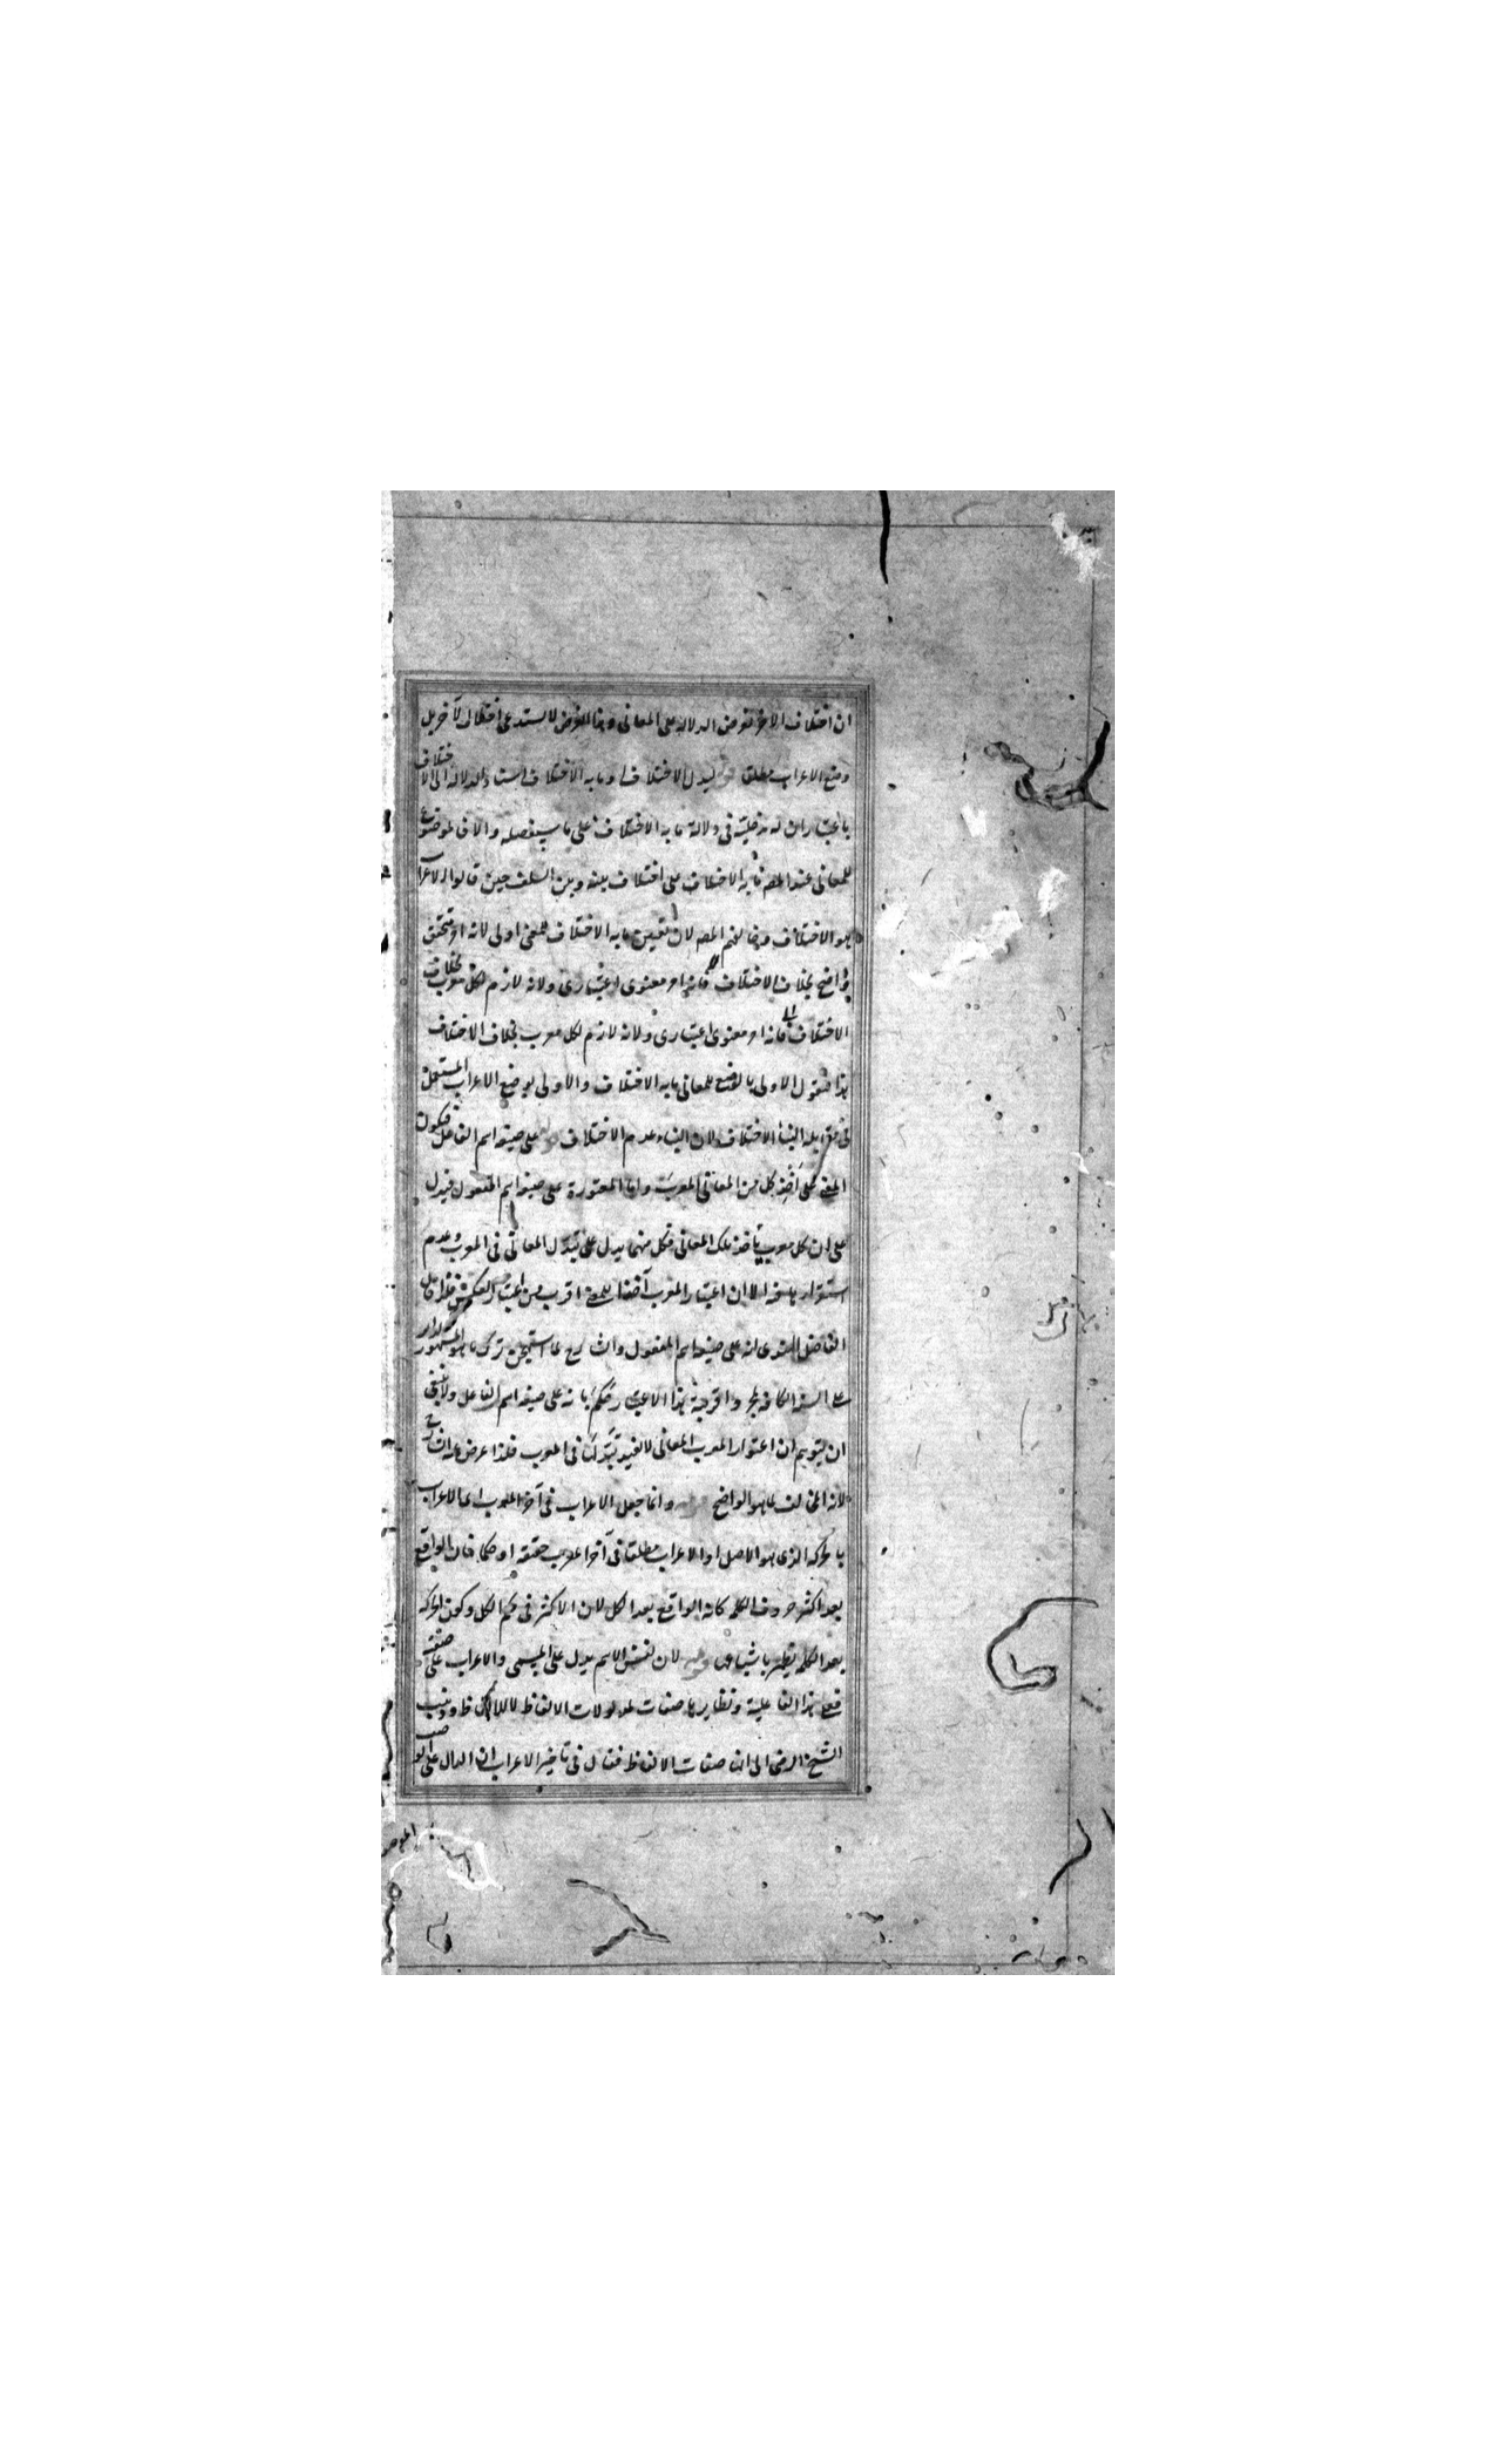 ان اختلاف الاخر لغرض الدلالة على المعانى وهذا الغرض لا يستدعى اختلاف الآخر بل
وضع الاعراب مطلق قوله ليدل الاختلاف او ما به الاختلاف اسناد الدلالة الى الاختلاف
باعتبار ان له مدخلية فى دلالة ما به الاختلاف على ما سيفصله والا فالموضوع
للمعانى عند المصه ما به الاختلاف على اختلاف بينه وبين السلف حين قالوا الاعراب
هو الاختلاف وخالفهم المصه لان تعيين ما به الاختلاف للمعنى اولى لانه امر متحقق
واضح بخلاف الاختلاف فانه امر معنوى اعتبارى ولانه لازم لكل معرب بخلاف
الاختلاف فانه امر معنوى اعتبارى ولانه لازم لكل معرب بخلاف الاختلاف
هذا فنقول الاولى بالوضع للمعانى ما به الاختلاف والاولى بوضع الاعراب المستعمل
فى مقابلة البناء الاختلاف لان البناء عدم الاختلاف قوله على صيغة اسم الفاعل فيكون
المعنى على اخذ كل من المعانى المعرب واما المعتورة على صيغة اسم المفعول فيدل
على ان كل معرب ياخذ تلك المعانى فكل منهما يدل على تبدل المعانى فى المعرب وعدم
استقرارها فيه الا ان اعتبار المعرب آخذا للمعنى اقرب من اعتبار العكس فلذا قال
الفاضل الهندى انه على صيغة اسم المفعول والشارح لما استهجن ترك ما هو المشهور الدائر
على السنة الكافة لمجرد اقربية هذا الاعتبار حكم بانه على صيغة اسم الفاعل ولا ينبغى
ان يتوهم ان اعتوار المعرب المعانى لا يفيد تبدلها فى المعرب فلذا اعرض عنه الشارح
لانه المخالف لما هو الواضح قوله وانما جعل الاعراب فى آخر المعرب اى الاعراب
بالحركة الذى هو الاصل او الاعراب مطلقا فى آخر المعرب حقيقة او حكما فان الواقع
بعد اكثر حروف الكلمة كانه الواقع بعد الكل لان الاكثر فى حكم الكل وكون الحركة
بعد الكلمة يظهر باشباعها قوله لان نفس الاسم يدل على المسمى والاعراب على صفته
فعلى هذا الفاعلية ونظايرها صفات لمدلولات الالفاظ لا للالفاظ وذهب
الشيخ الرضى الى انها صفات الالفاظ فقال فى تاخير الاعراب ان الدال على الوصف